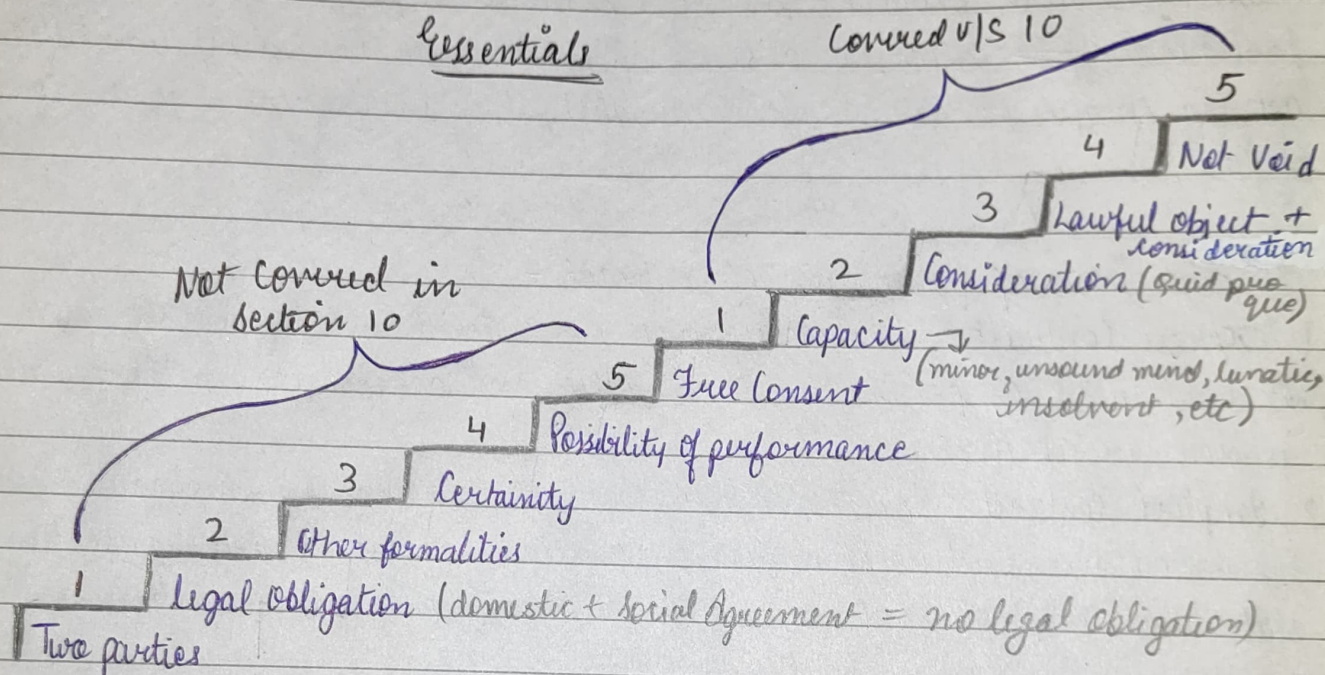 Essentials
Covered U/S 10
5
4
Not Void
3
Lawful object +
consideration
Not Covered in
section 10
2
Consideration (Quid pro
quo)
1
Capacity →
(minor, unsound mind, lunatic,
insolvent, etc)
5
Free Consent
4
Possibility of performance
3
Certainity
2
Other formalities
1
Legal obligation (domestic + Social Agreement = no legal obligation)
Two parties